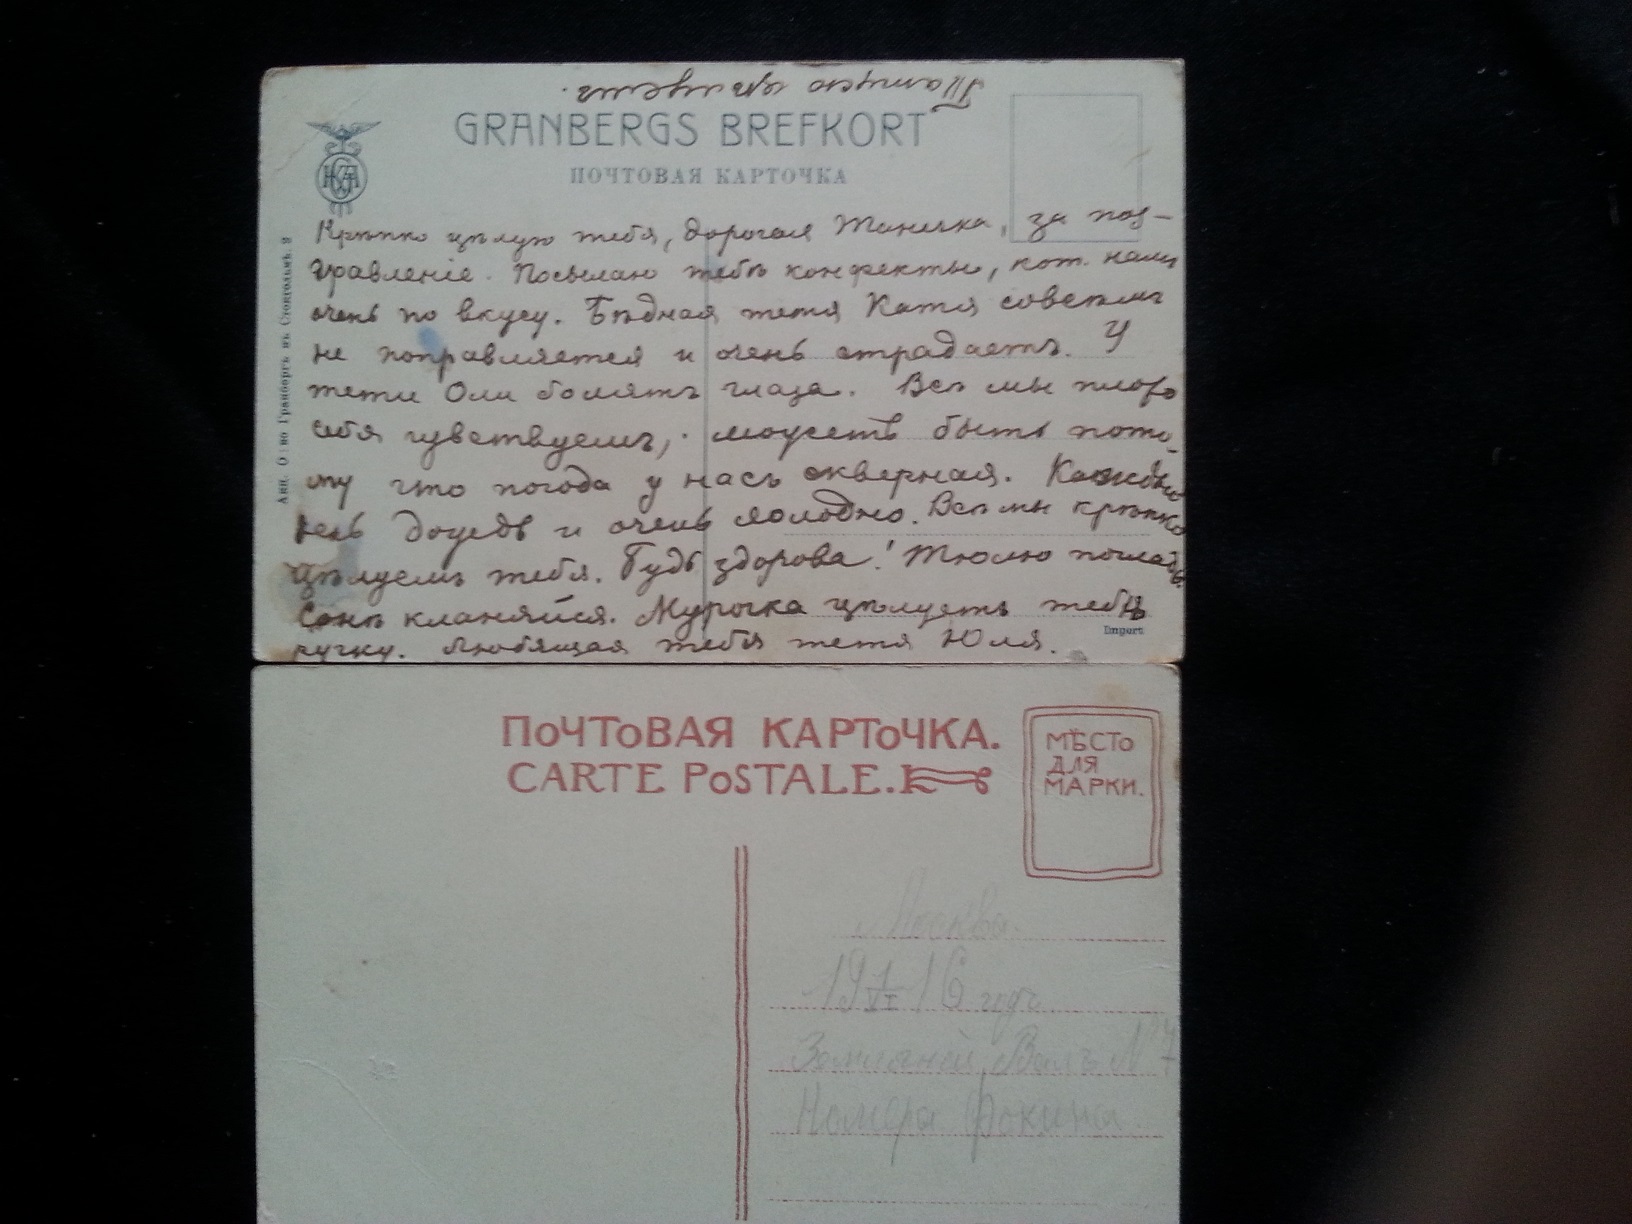 Папцю цѣлуетъ.
GRANBERGS BREFKORT
ПОЧТОВАЯ КАРТОЧКА
Крѣпко цѣлую тебя, дорогая Танечка, за поз-
дравленіе. Посылаю тебѣ конфекты, кот. намъ
очень по вкусу. Бѣдная тетя Катя совсѣмъ
не поправляется и очень страдаетъ. У
тети Оли болятъ глаза. Всѣ мы плохо
себя чувствуемъ, можетъ быть пото-
му что погода у насъ скверная. Каждый
день дождь и очень холодно. Всѣ мы крѣпко
цѣлуемъ тебя. Будь здорова! Тюлю погладь.
Сонѣ кланяйся. Мурочка цѣлуетъ тебѣ
ручку. Любящая тебя тетя Юля.
Import
Акц. О-во Гранбергъ въ Стокгольмѣ.
ПОЧТОВАЯ КАРТОЧКА.
CARTE POSTALE.
МѢСТО
ДЛЯ
МАРКИ.
Москва.
19 VI 16 годъ
Земляной Валъ №
Номера Фокина.